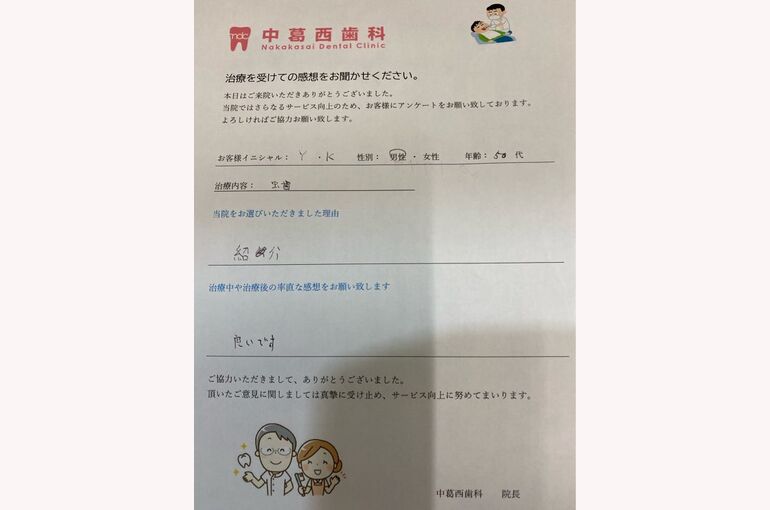 mdc
中葛西歯科
Nakakasai Dental Clinic
治療を受けての感想をお聞かせください。
本日はご来院いただきありがとうございました。
当院ではさらなるサービス向上のため、お客様にアンケートをお願い致しております。
よろしければご協力お願い致します。
お客様イニシャル： Y ・K 性別： 男性 ・ 女性 年齢：50 代
治療内容： 虫歯
当院をお選びいただきました理由
紹介
治療中や治療後の率直な感想をお願い致します
良いです
ご協力いただきまして、ありがとうございました。
頂いたご意見に関しましては真摯に受け止め、サービス向上に努めてまいります。
中葛西歯科 院長